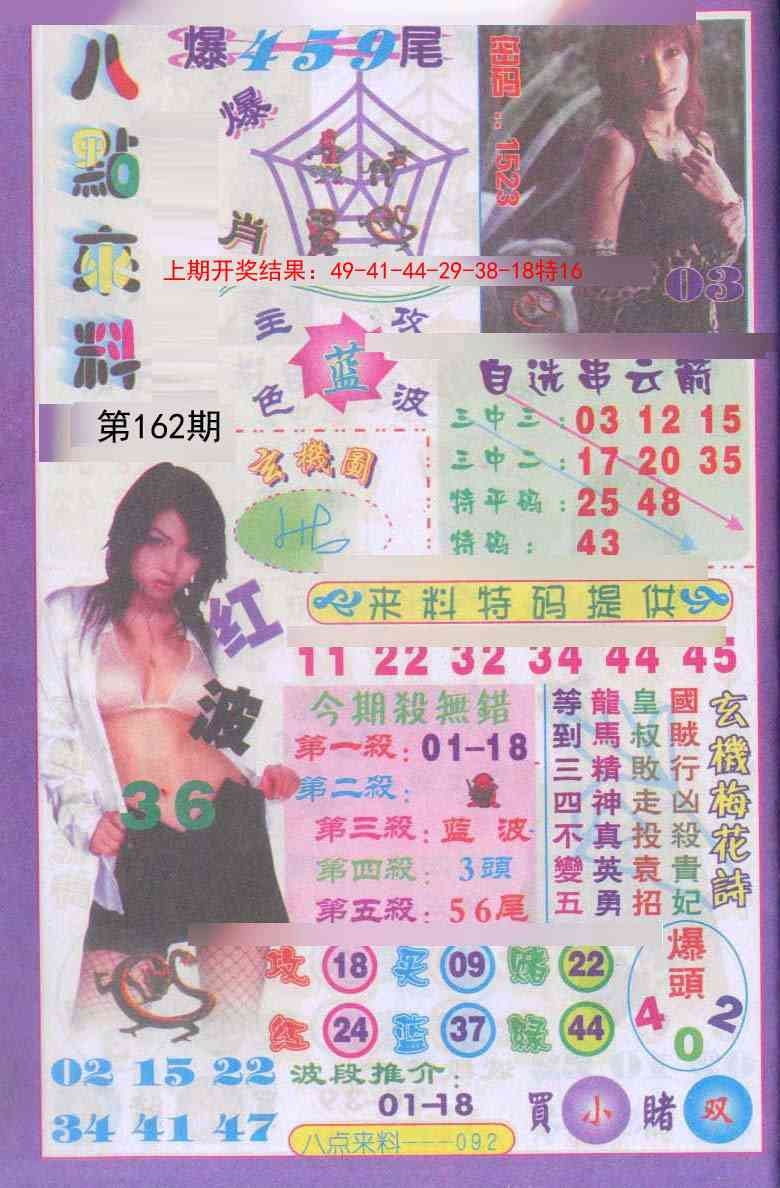 八點來料
爆459尾
爆肖
密碼：1523
03
上期开奖结果：49-41-44-29-38-18特16
主攻
蓝
色波
第162期
自选串云箭
三中三：03 12 15
三中二：17 20 35
特平码：25 48
特码：43
玄機圖
来料特码提供
11 22 32 34 44 45
红波
36
今期殺無錯
第一殺：01-18
第二殺：
第三殺：蓝波
第四殺：3頭
第五殺：56尾
玄機梅花詩
國賊行凶殺貴妃
皇叔敗走投袁招
龍馬精神真英勇
等到三四不變五
攻 18 买 09 赌 22
红 24 蓝 37 绿 44
爆頭
4 0 2
02 15 22
34 41 47
波段推介：
01-18
買小賭双
八点来料----092